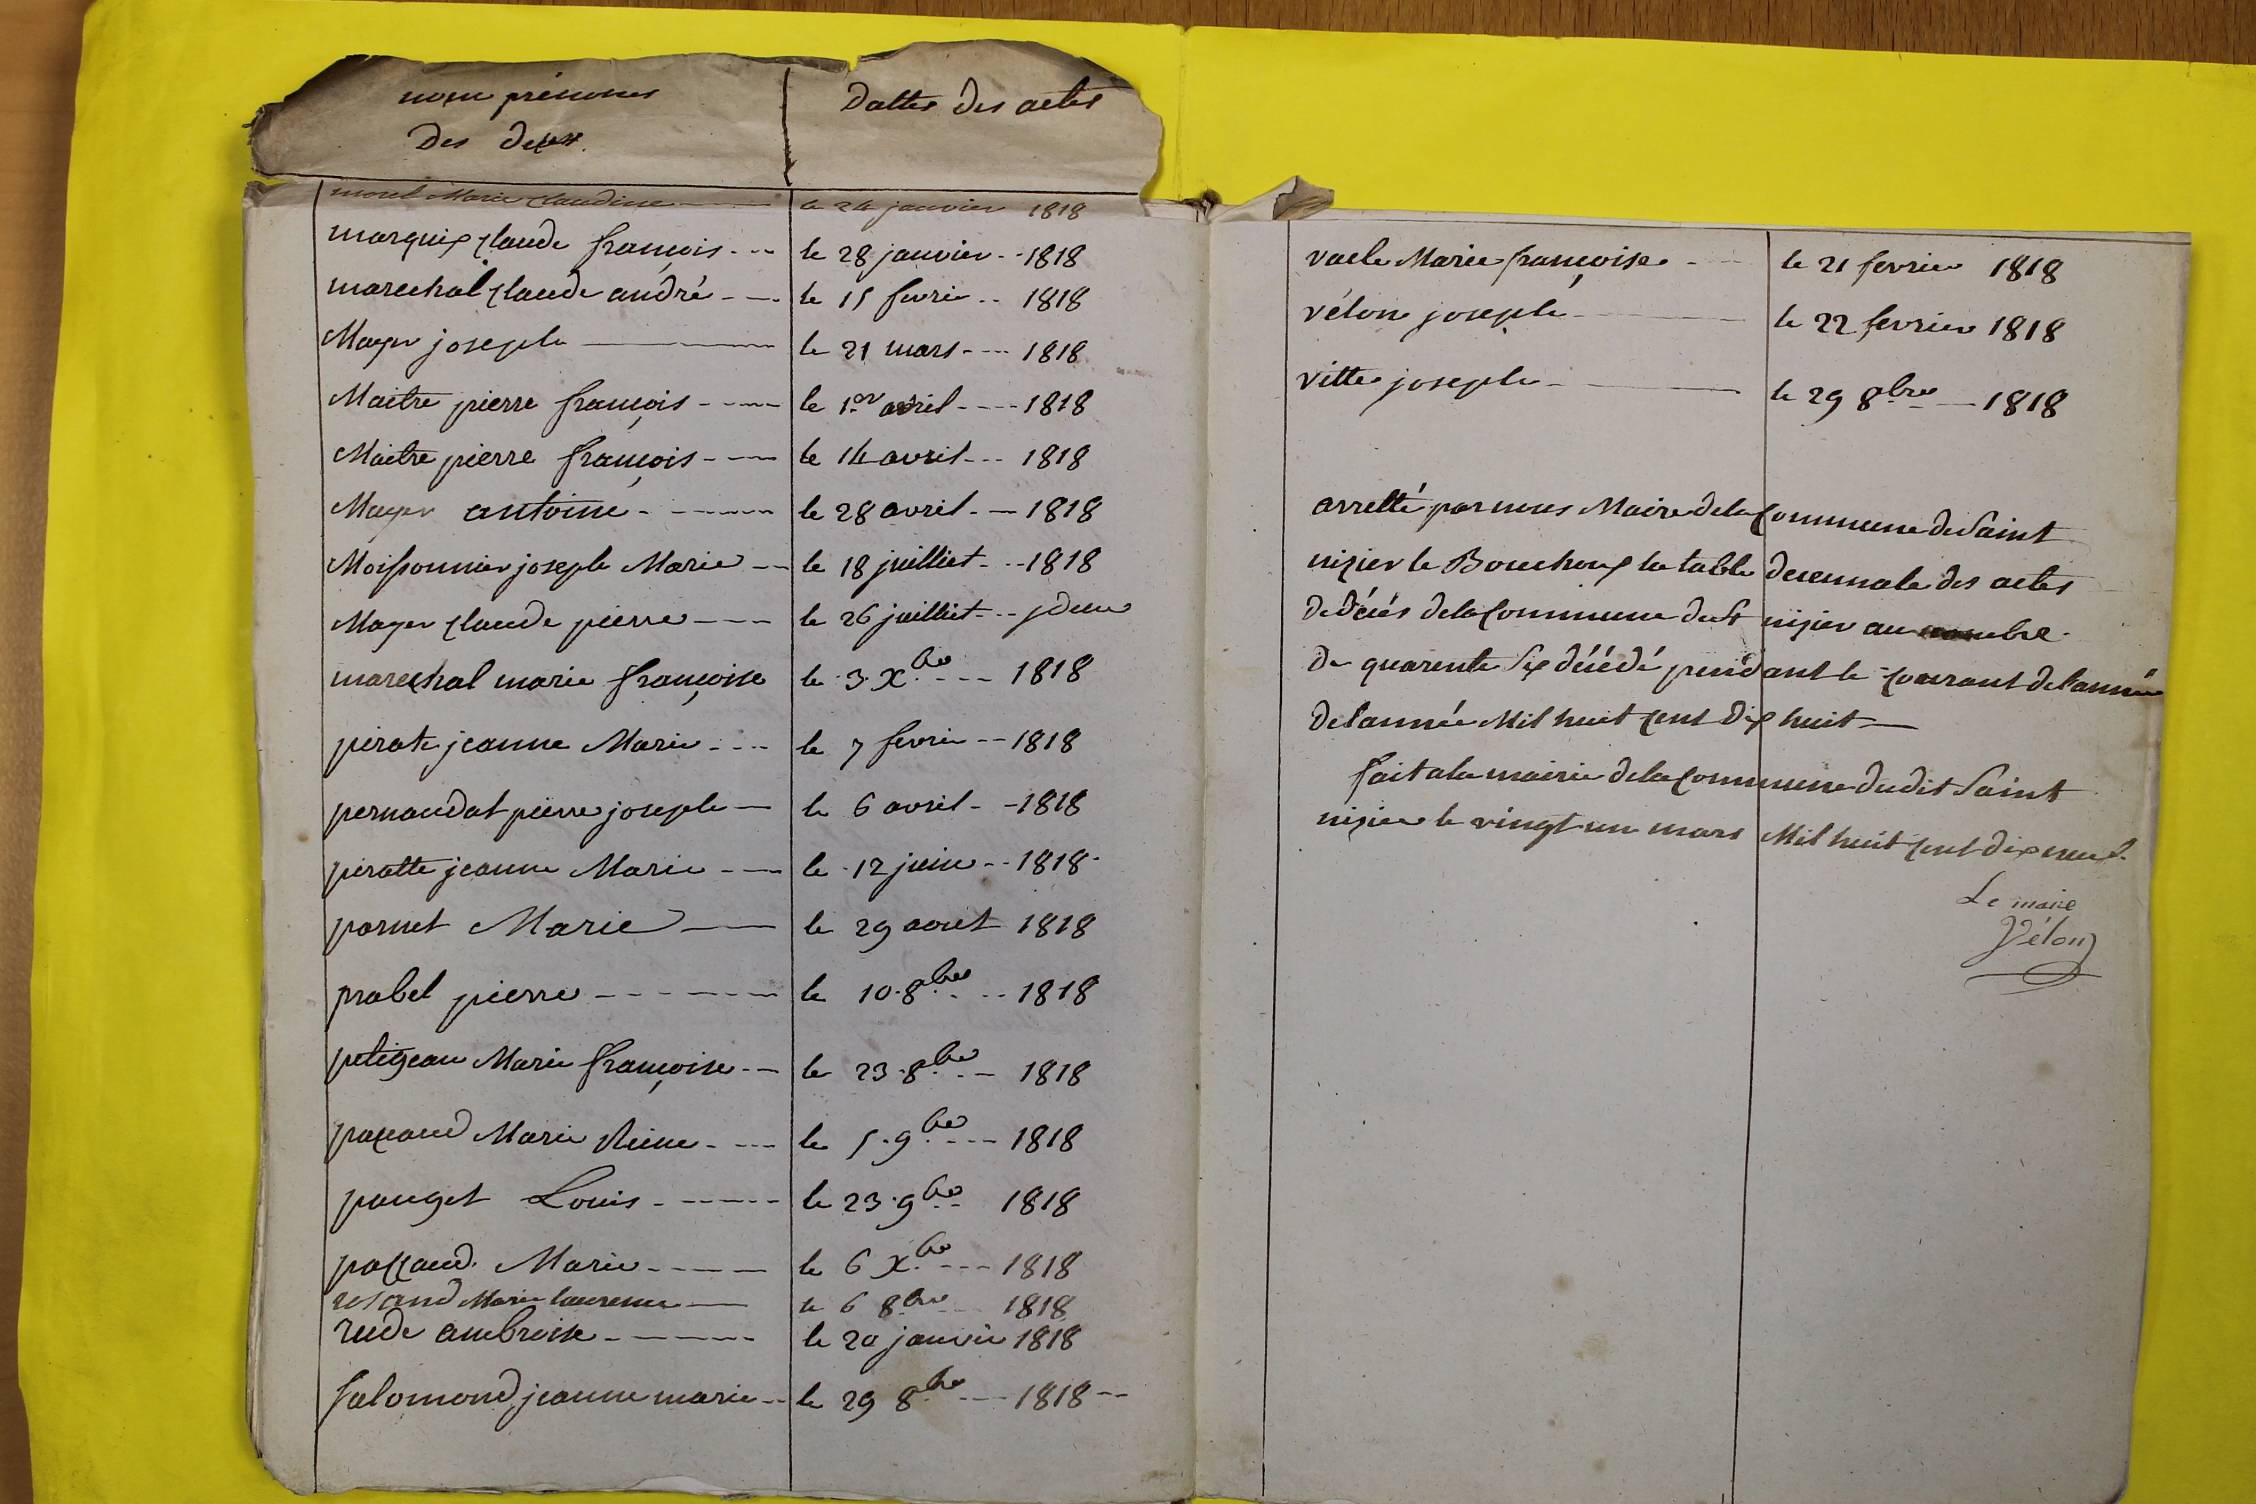 nom prénoms
Des
Dattes Des actes
morel Marie Claudine le 24 janvier 1818
marquis Claude françois le 28 janvier 1818
marechal Claude andré le 15 fevrie 1818
Mayer joseph le 21 mars 1818
Maitre pierre françois le 1er avril 1818
Maitre pierre françois le 14 avril 1818
Mayer antoine le 28 avril 1818
Moissonnier joseph Marie le 18 juilliet 1818
Mayer Claude pierre le 26 juilliet jdem
marechal marie françoise le 3 Xbre 1818
pirate jeanne Marie le 7 fevrie 1818
pernaudat pierre joseph le 6 avril 1818
piratte jeanne Marie le 12 juin 1818
pornet Marie le 29 aout 1818
prabel pierre le 10 8bre 1818
petitjean Marie françoise le 23 8bre 1818
Marie Reine le 5 9bre 1818
pouget Louis le 23 9bre 1818
Marie le 6 Xbre 1818
Marie laurence le 6 8bre 1818
rude ambroise le 20 janvie 1818
Salomond jeanne marie le 29 8bre 1818
Marie françoise le 21 fevrier 1818
vélon joseph le 22 fevrier 1818
vitte joseph le 29 8bre 1818
arretté par nous Maire de la Commune de Saint
nizier le Bouchoux la table decennale des actes
de décés de la Commune de St nizier au nombre
de quarente six décédé pendant le courrant de l'année
de l'année Mil huit cent dix huit
fait a la mairie de la Commune dudit Saint
nizier le vingt un mars Mil huit cent dix neuf
Le maire
Vélon